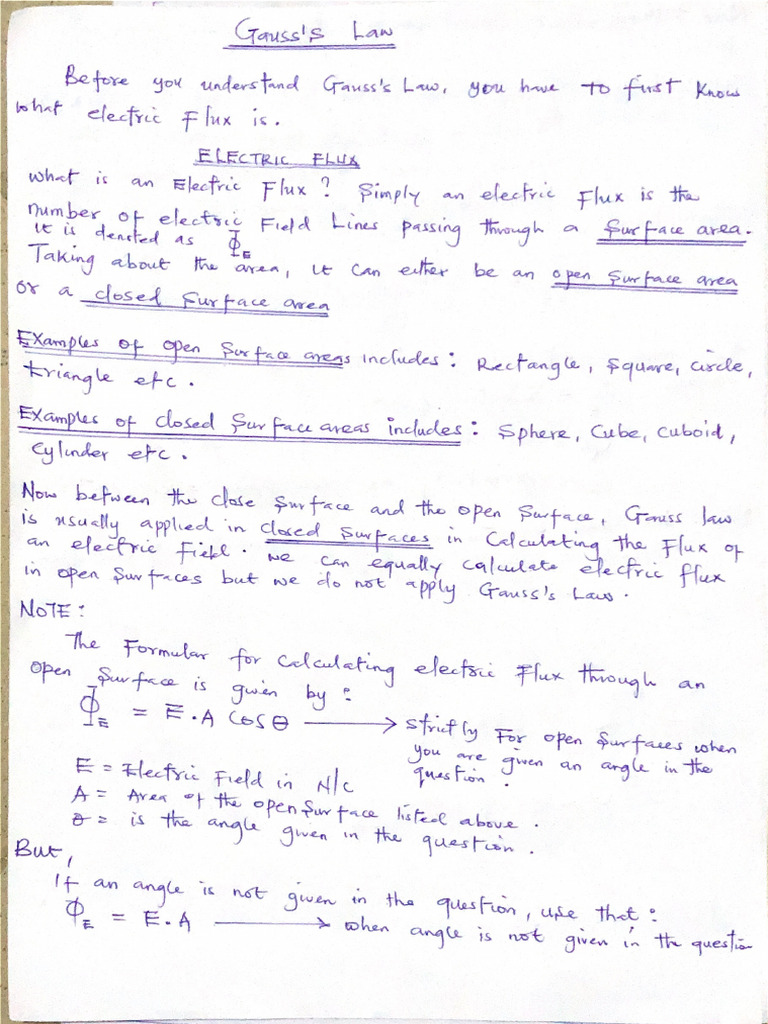 Gauss's Law
Before you understand Gauss's Law, you have to first know
what electric Flux is.
ELECTRIC FLUX
What is an Electric Flux? Simply an electric Flux is the
number of electric Field Lines passing through a Surface area.
It is denoted as Φ_E
Taking about the area, it can either be an open Surface area
or a closed Surface area
Examples of open Surface areas includes: Rectangle, Square, Circle,
triangle etc.
Examples of Closed Surface areas includes: Sphere, Cube, Cuboid,
Cylinder etc.
Now between the close Surface and the open Surface, Gauss law
is usually applied in Closed Surfaces in Calculating the Flux of
an electric Field. We can equally calculate electric flux
in open Surfaces but we do not apply Gauss's Law.
NOTE:
The Formular for Calculating electric Flux through an
open Surface is given by:
Φ_E = E.A Cosθ → Strictly For open Surfaces when
you are given an angle in the
question.
E = Electric Field in N/C
A = Area of the open Surface listed above.
θ = is the angle given in the question.
But,
If an angle is not given in the question, use that:
Φ_E = E.A → when angle is not given in the question